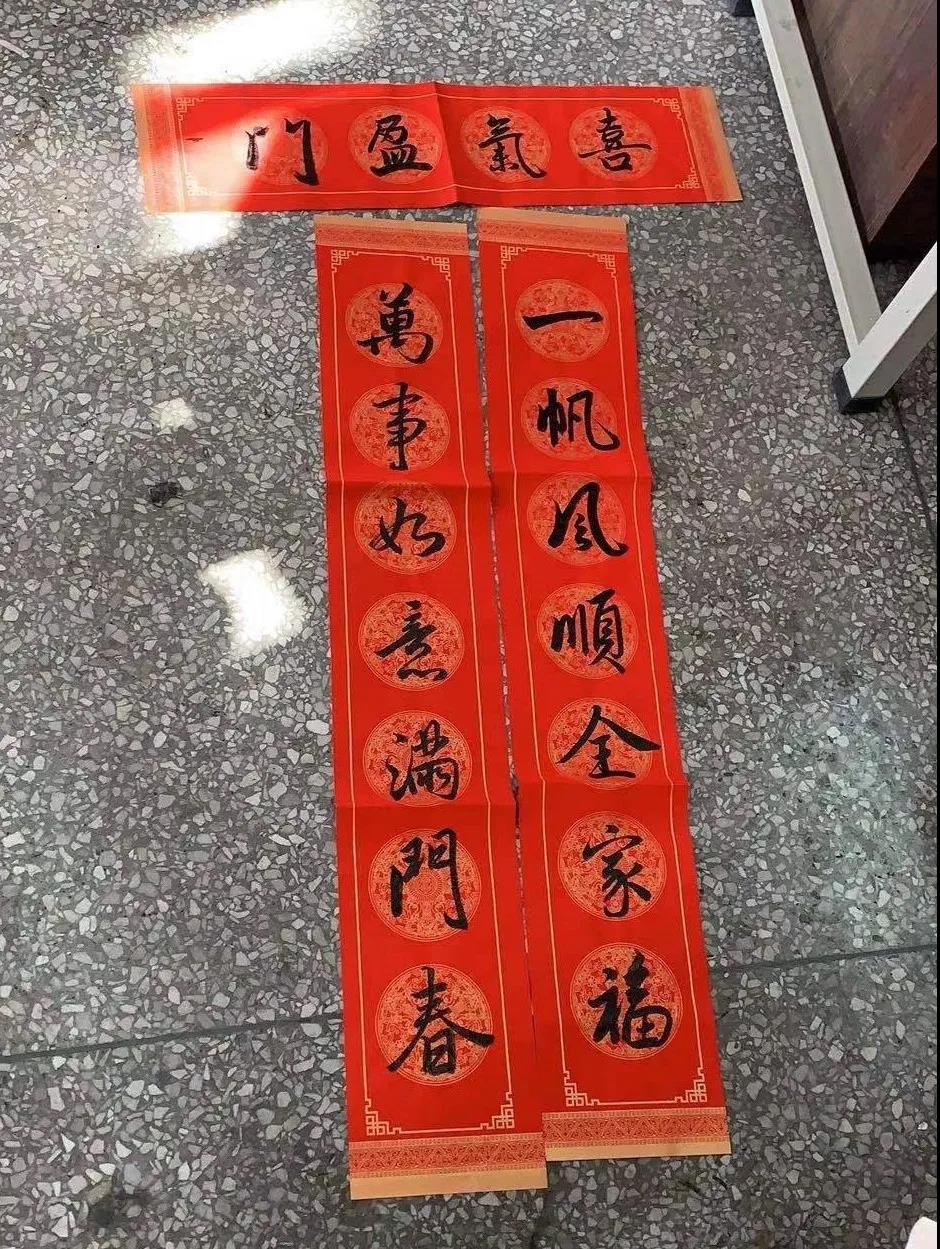 喜氣盈門
一帆風順全家福
萬事如意滿門春